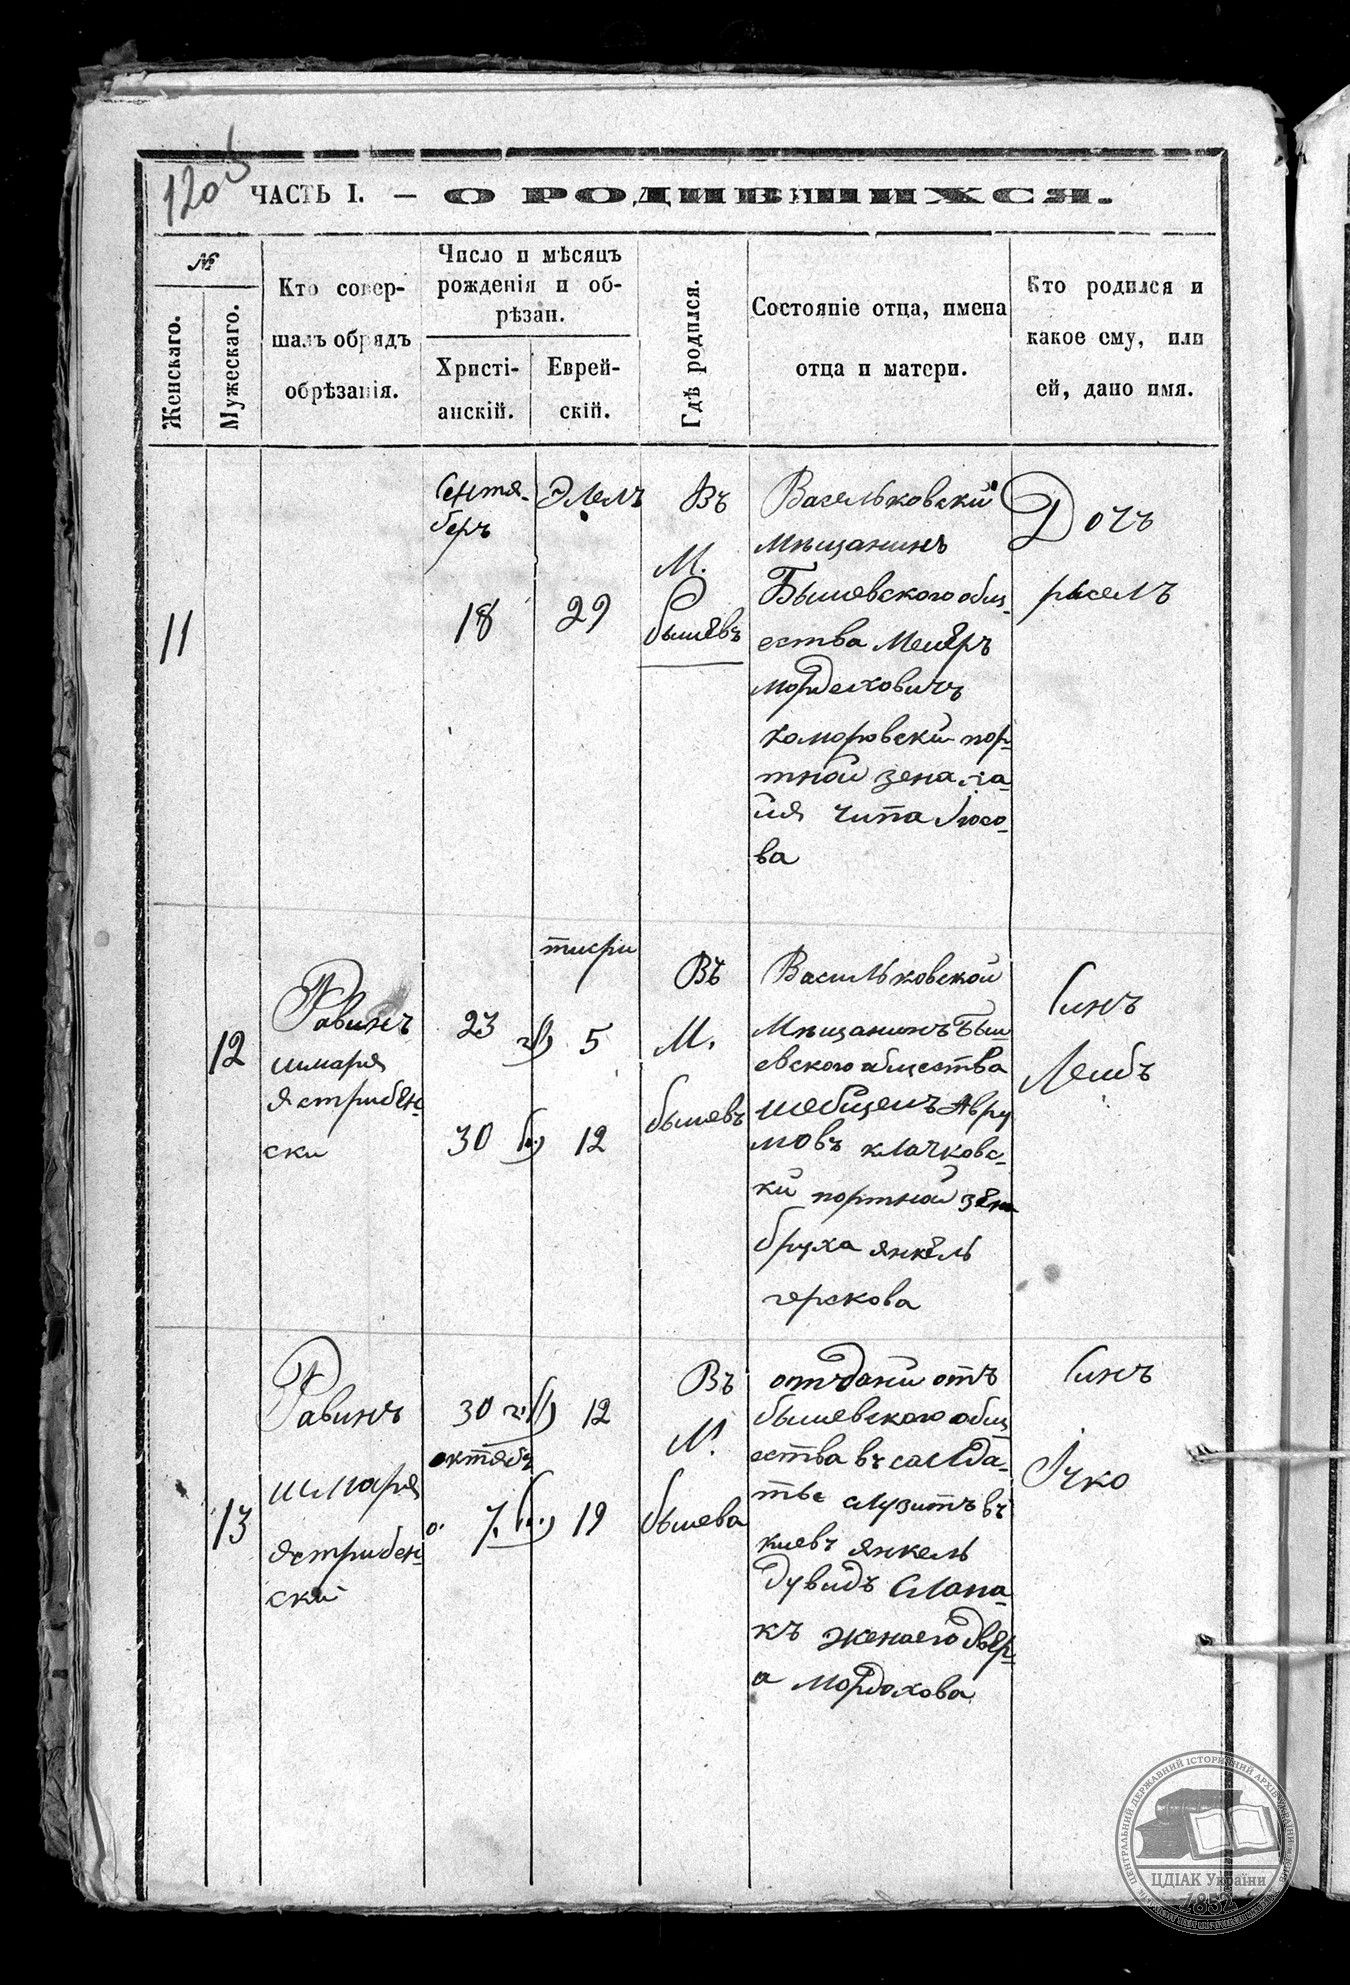 120 об
ЧАСТЬ I. — О РОДИВШИХСЯ.
№
Женскаго.
Мужескаго.
Кто совер-
шалъ обрядъ
обрѣзанія.
Число и мѣсяцъ
рожденія и об-
рѣзан.
Христі-
анскій.
Еврей-
скій.
Гдѣ родился.
Состояніе отца, имена
отца и матери.
Кто родился и
какое ему, или
ей, дано имя.
11
Сентя-
беръ
18
Элелъ
29
Въ
М.
бышевъ
Васельковский
Мѣщанинъ
Бышевского общ-
ества Меіеръ
Мордеховичъ
Коморовски пор-
тной
чипа Іосо-
ва
Дочъ
рыселъ
12
Равинъ
шмария
ястрибен-
ски
23
30
тисри
5
12
Въ
М.
бышевъ
Васильковской
Мѣщанинъ Быш
евского общества
Авру
мовъ клачковс-
ки портной
бруха янкель
герскова
Синъ
Леибъ
13
Равинъ
шмария
ястрибен-
ский
30
октябъ
7
12
19
Въ
М.
бышева
отъдани отъ
бышевского общ
ества въ салда-
тъе слузитъ въ
киевъ янкель
дувидъ Слопа-
къ женаего двер-
а мордохова
Синъ
Ічко
ЦЕНТРАЛЬНИЙ ДЕРЖАВНИЙ ІСТОРИЧНИЙ АРХІВ УКРАЇНИ
ЦДІАК України
1852